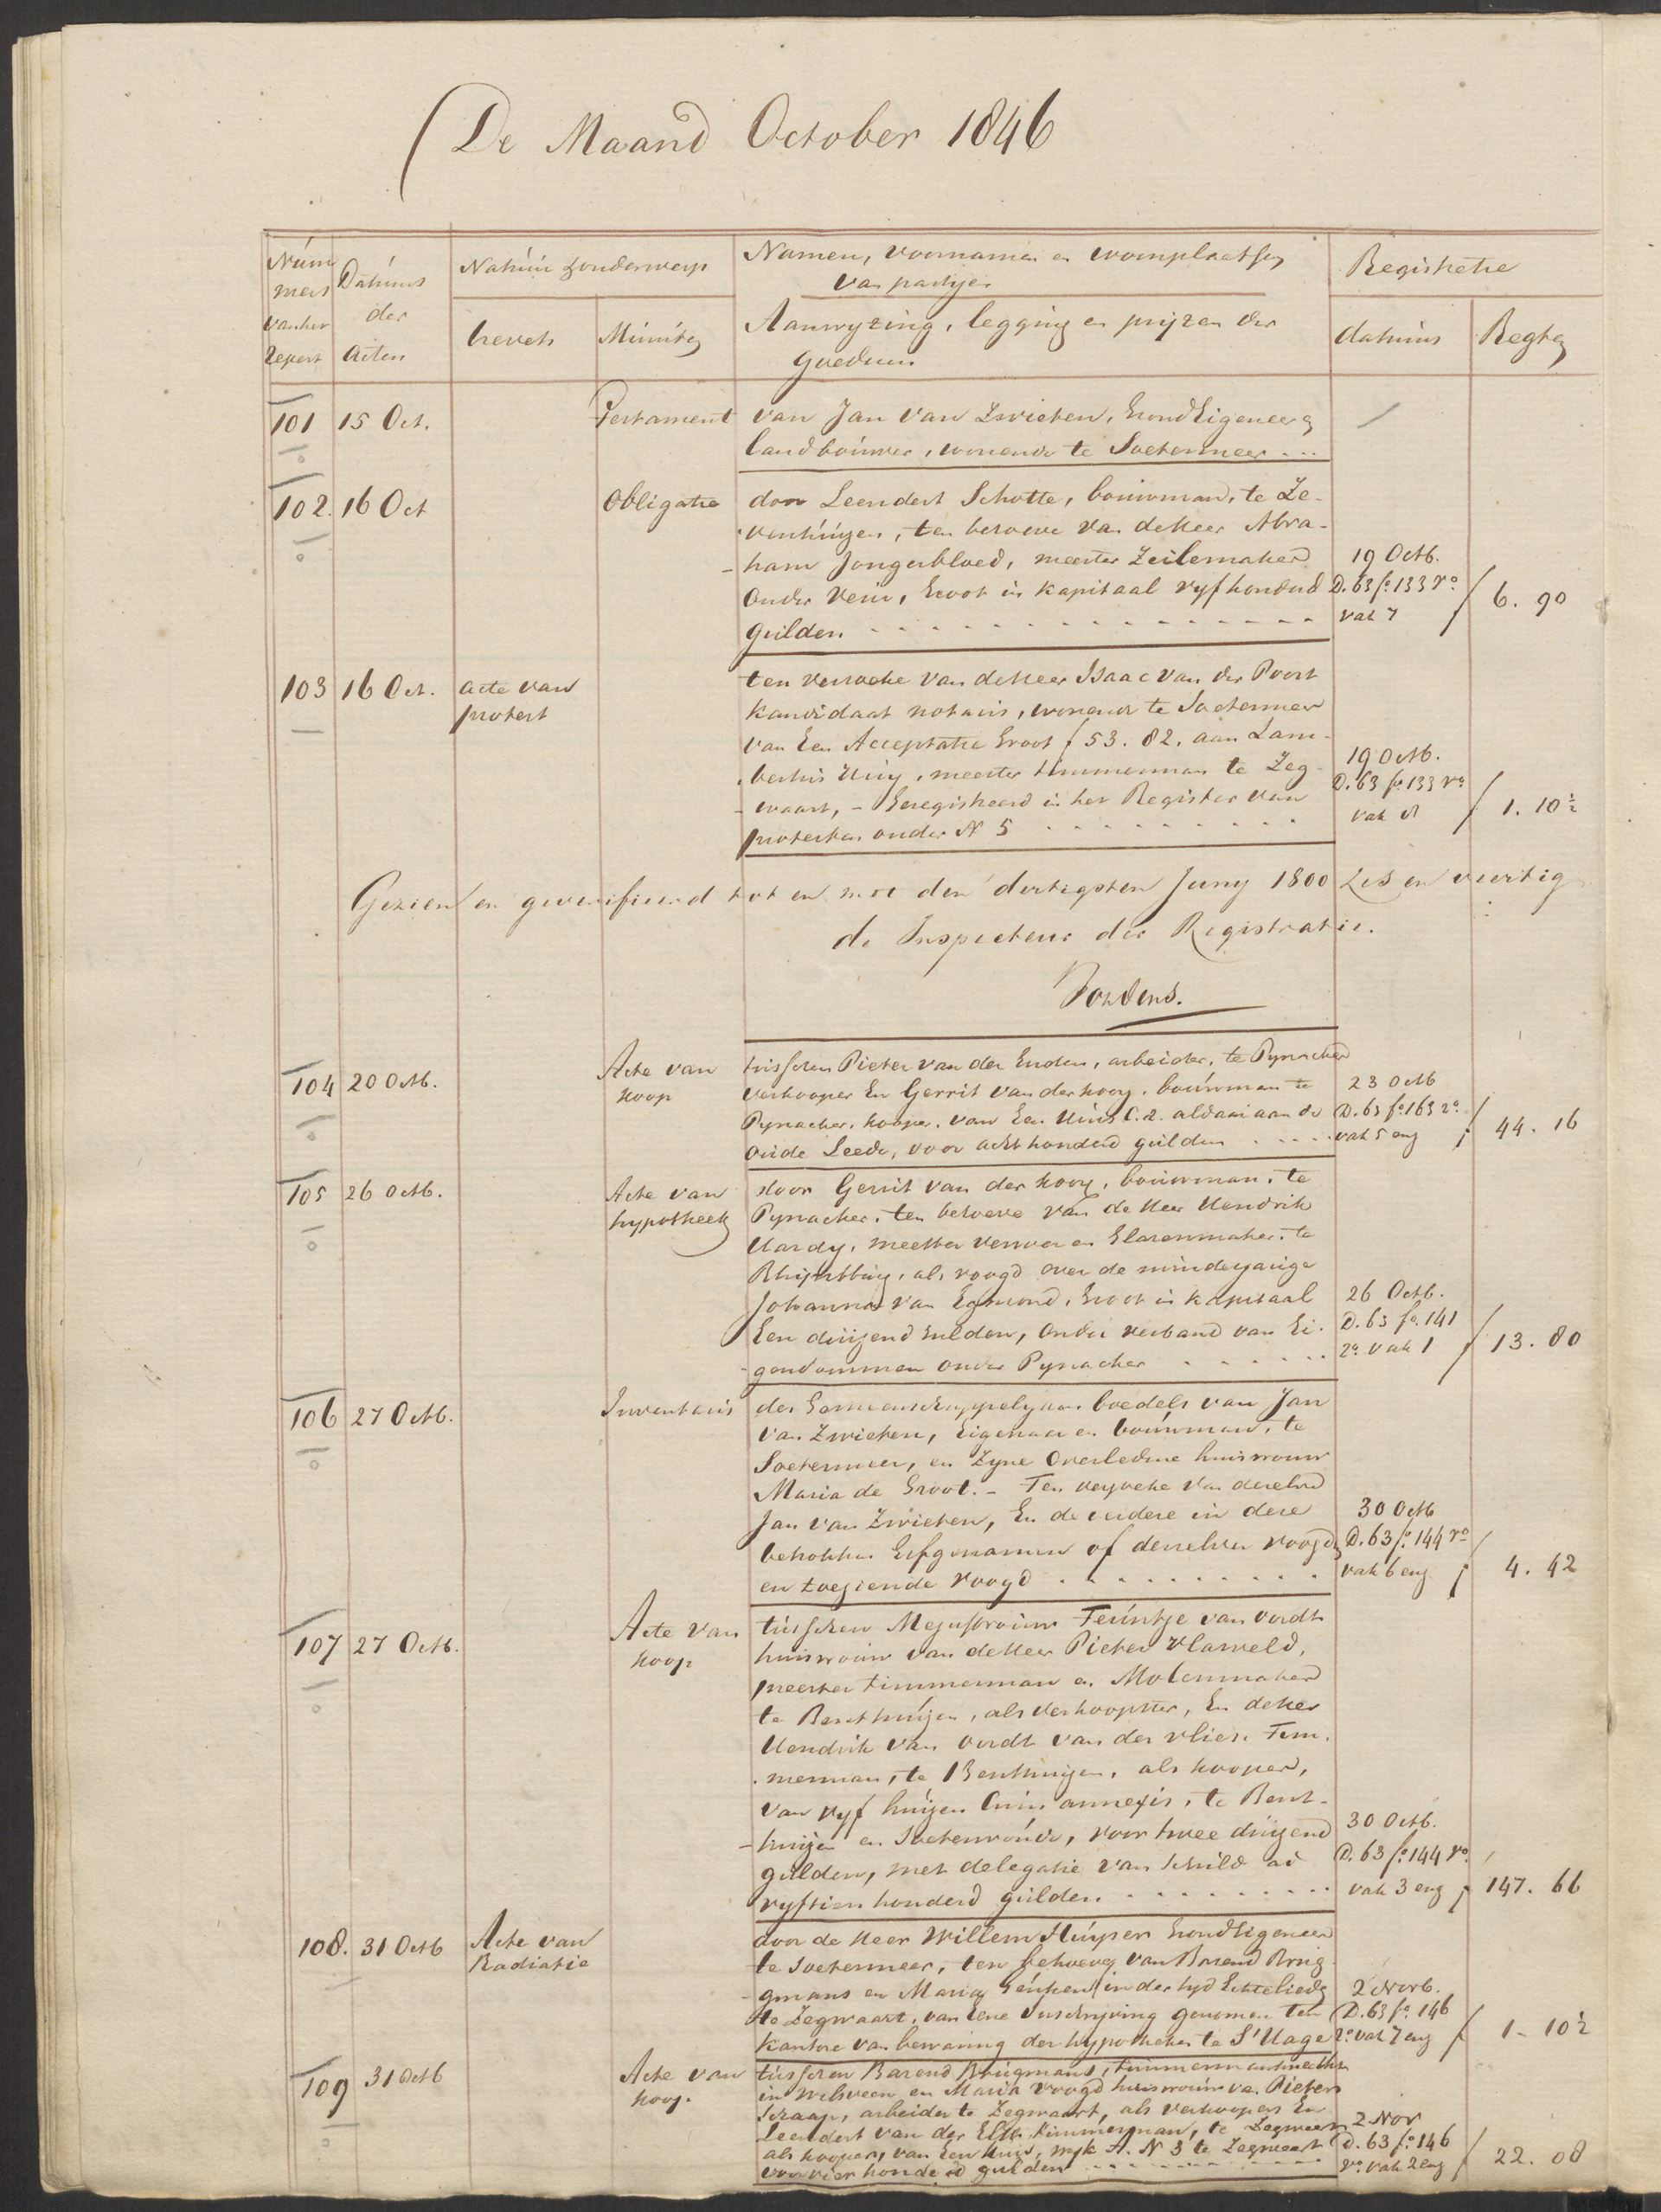 De Maand October 1846
Num
mers
van het
Repert
Datums
der
Acten
Natuur & onderwerp
brevets
Minúte
Namen, voornamen en woonplaatsen
van partijen
Aanwyzing, ligging en prijzen der
goederen
Registratie
datums
Regten
101 15 Oct. Testament van Jan van Zwieten, GrondEigenaar &
landbouwer, wonende te Soetermeer ...
102. 16 Oct Obligatie door Leendert Schotte, bouwman, te Ze-
venhuizen, ten behoeve van de Heer Abra-
ham Jongerbloed, meester Zeilemaker 19 Octb.
onder , Groot in kapitaal vyfhonderd D. 63 fo. 133 ro
gulden vak 7 f 6. 90
103 16 Oct. acte van ten verzoeke van de Heer Isaac van der Poort
protest kandidaat notaris, wonende te Soetermeer
van Een Acceptatie Groot f 53. 82. aan Lam-
bertus , meester timmerman te Zeg- 19 Octb.
waart, - Geregistreerd in het Register van D. 63 fo. 133 ro
protesten onder N 5 vak 8 f 1. 10½
Gezien en geverifieerd tot en met den dertigsten Juny 1800 Zes en veertig
de Inspecteur der Registratie.
104 20 Octb. Acte van tusschen Pieter van der Enden, arbeider, te Pynacker
Koop verkooper En Gerrit van der kooy, bouwman te 23 Octb
Pynacker, kooper, van Een Huis C. 2. aldaar aan de D. 63 fo. 163 ro
oude Leede, voor acht honderd gulden vak 5 enz f 44. 16
105 26 Octb. Acte van door Gerrit van der kooy, bouwman, te
hypotheek Pynacker, ten behoeve van de Heer Hendrik
Hardy, meester verwer en Glasenmaker, te
, als voogd over de minderjarige
Johannes van Egmond, Groot in kapitaal 26 Octb.
Een duizend Gulden, Onder verband van Ei- D. 63 fo. 141
gendommen onder Pynacker ro. vak 1 f 13. 80
106 27 Octb. Inventaris des Gemeenschappelyken boedels van Jan
van Zwieten, Eigenaar en bouwman, te
Soetermeer, en Zyne Overledene huisvrouw
Maria de Groot. - Ten verzoeke van denelven
Jan van Zwieten, En de verdere in deze 30 Octb
betrokken Erfgenamen of derzelver voogd D. 63 fo. 144 ro
en toeziende voogd vak 6 enz f 4. 42
107 27 Octb. Acte van tusschen Mejufvrouw Teuntje van Oordt
koop huisvrouw van de Heer Pieter Vlasveld,
meester timmerman en Molenmaker
te Benthuizen, als verkoopster, En de Heer
Hendrik van Oordt van der vlies, Tim-
merman, te Benthuizen, als kooper,
van vyf huizen Cum annexis, te Bent-
huizen en Soeterwoude, voor twee duizend 30 Octb.
gulden, met delegatie van schuld ad D. 63 fo. 144 vo.
vyftien honderd gulden vak 3 enz f 147. 66
108. 31 Octb Acte van door de Heer Willem Kuyper Grondeigenaar
Radiatie te Soetermeer, ten behoeve van Barend Brug-
gmans en Maria in der tyd Echtelieden 2 Novb.
te Zegwaart, van eene Inschryving genomen ten D. 63 fo. 146
kantore van bewaring der hypotheken te S'Hage ro. vak 7 enz f 1- 10½
109 31 Octb Acte van tusschen Barend Brúgmans, timmermansknecht
koop. in en Maria Voogd huisvrouw van Pieter
Schaap, arbeider te Zegwaart, als verkoopers En
Leendert van der Elst timmerman, te Zegwaart 2 Nov
als kooper, van Een Huis, wyk A. N 3 te Zegwaart D. 63 fo. 146
voor vier honderd gulden vo. vak 2 enz f 22. 08